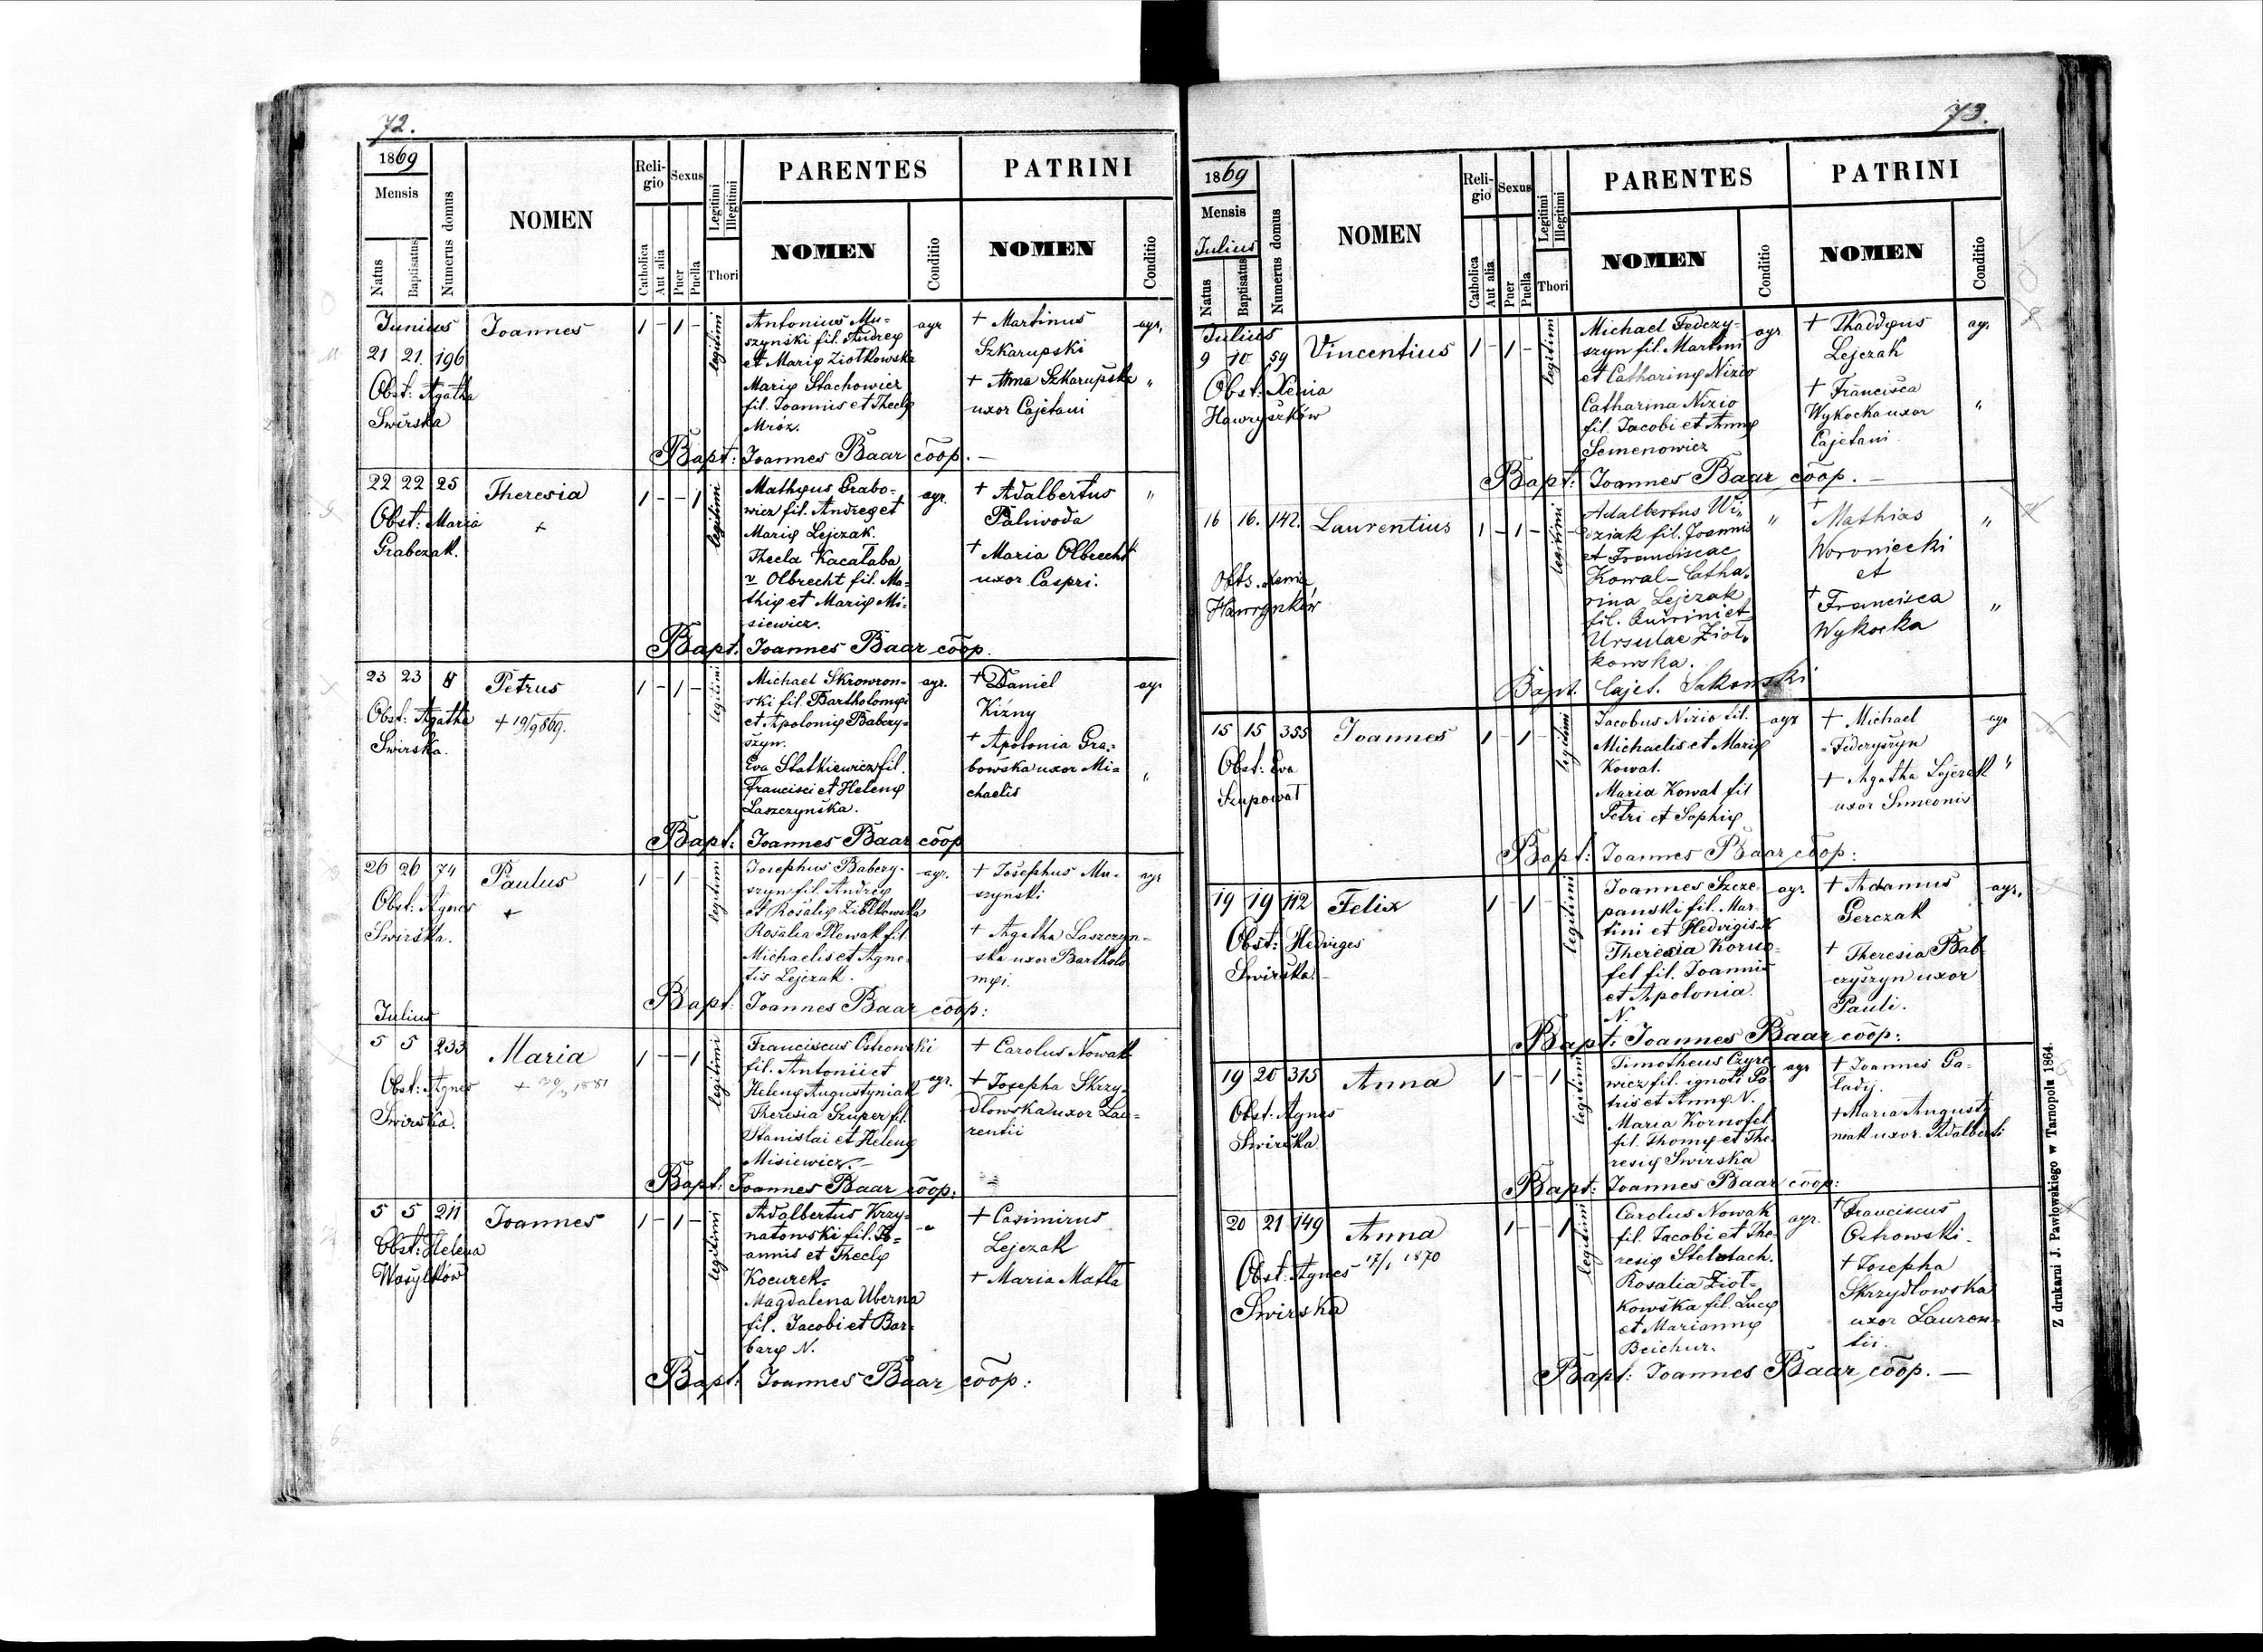 72.
1869
Mensis
Natus
Baptisatus
Numerus domus
NOMEN
Reli-
gio
Catholica
Aut alia
Sexus
Puer
Puella
Legitimi
Illegitimi
Thori
PARENTES
NOMEN
Conditio
PATRINI
NOMEN
Conditio
Junius
21 21. 196
Obst: Agatha
Swirska
Joannes
1 - 1 -
legitimi
Antonius Mu-
szynski fil. Andreę
et Marię Ziołkowska
Marię Stachowicz
fil. Joannis et Theclę
Mróz.
agr
+ Martinus
Szkarupski
+ Anna Szkarupska
uxor Cajetani
agr.
"
Bapt: Joannes Baar coop. —
22 22 25
Obst: Maria
Grabczak.
Theresia
+
1 - - 1
legitimi
Mathęus Grabo-
wicz fil. Andreę et
Marię Lejczak.
Thecla Kacałaba
v Olbrecht fil. Ma-
thię et Marię Mi-
siewicz.
agr.
+ Adalbertus
Paliwoda
+ Maria Olbrecht
uxor Caspri.
"
Bapt. Joannes Baar coop.
23 23 8
Obst: Agatha
Swirska.
Petrus
+ 19/9 869.
1 - 1 -
legitimi
Michael Skrowron-
ski fil. Bartholomęi
et Apolonię Babczy-
szyn.
Eva Statkiewicz fil.
Francisci et Helenę
Laszczynska.
agr.
+ Daniel
Kizny
+ Apolonia Gra-
bowska uxor Mi-
chaelis
agr
"
Bapt: Joannes Baar coop
26 26 74
Obst: Agnes
Swirska.
Paulus
+
1 - 1 -
legitimi
Josephus Babczy-
szyn fil. Andreę
et Rosalię Ziołkowska
Rosalia Plewak fil.
Michaelis et Agne-
tis Lejczak.
agr.
+ Josephus Mu-
szynski
+ Agatha Laszczyn-
ska uxor Bartholo
męi.
agr
Bapt: Joannes Baar coop:
Julius
5 5 233
Obst: Agnes
Swirska.
Maria
+ 20/3 1881
1 - - 1
legitimi
Franciscus Ostrowski
fil. Antonii et
Helenę Augustyniak
Theresia Szuper fil.
Stanislai et Helenę
Misiewicz. —
agr.
+ Carolus Nowak
+ Josepha Skrzy-
dłowska uxor Lau-
rentii
Bapt: Joannes Baar coop:
5 5 211
Obst: Helena
Wasylków
Joannes
1 - 1 -
legitimi
Adalbertus Krzy-
natowski fil. Jo-
annis et Theclę
Kocurek.
Magdalena Uberna
fil. Jacobi et Bar-
barę N.
+ Casimirus
Lejczak
+ Maria Matła
Bapt: Joannes Baar coop:
73.
1869
Mensis
Julius
Natus
Baptisatus
Numerus domus
NOMEN
Reli-
gio
Catholica
Aut alia
Sexus
Puer
Puella
Legitimi
Illegitimi
Thori
PARENTES
NOMEN
Conditio
PATRINI
NOMEN
Conditio
Julius
9 10 59
Obst: Xenia
Hawryszków
Vincentius
1 - 1 -
legitimi
Michael Fedczy-
szyn fil. Martini
et Catharinę Nizio
Catharina Nizio
fil. Jacobi et Annę
Semenowicz
agr
+ Thaddęus
Lejczak
+ Francisca
Wykocka uxor
Cajetani.
agr
"
Bapt: Joannes Baar coop. —
16 16. 142.
Obts. Xenia
Hawrynków
Laurentius
1 - 1 -
legitimi
Adalbertus Wi-
dziak fil. Joannis
et Franciscae
Kowal - Catha-
rina Lejczak
fil. Quirini et
Ursulae Zioł-
kowska.
"
+ Mathias
Woroniecki
et
+ Francisca
Wykocka
"
"
Bapt. Cajet. Sakowski
15 15 355
Obst: Eva
Szupował
Joannes
1 - 1 -
legitimi
Jacobus Nizio fil.
Michaelis et Marię
Kowal.
Maria Kowal fil
Petri et Sophię
agr
+ Michael
Federyszyn
+ Agatha Lejczak
uxor Simeonis
agr
"
Bapt: Joannes Baar coop:
19 19 112
Obst: Hedviges
Swirska. —
Felix
1 - 1 -
legitimi
Joannes Szcze-
panski fil. Mar-
tini et Hedvigis N
Theresia Korno-
fel fil. Joannis
et Apolonia.
N.
agr.
+ Adamus
Gerczak
+ Theresia Bab-
czyszyn uxor
Pauli.
agr.
Bapt: Joannes Baar coop:
19 20 315
Obst: Agnes
Swirska.
Anna
1 - - 1
legitimi
Timotheus Czyre
wicz fil. ignoti Pa
tris et Annę N.
Maria Kornofel
fil. Thomę et The-
resię Swirska
agr
+ Joannes Ga-
ładij.
+ Maria Augusty
niak uxor Adalberti
Bapt: Joannes Baar coop:
20 21 149
Obst: Agnes
Swirska
Anna
17/1 1870
1 - - 1
legitimi
Carolus Nowak
fil. Jacobi et The-
resię Stelmach.
Rosalia Zioł-
kowska fil. Lucę
et Mariannę
Beichur.
agr.
+ Franciscus
Ostrowski.
+ Josepha
Skrzydłowska
uxor Lauren-
tii.
Bapt: Joannes Baar coop. —
Z drukarni J. Pawłowskiego w Tarnopolu 1864.